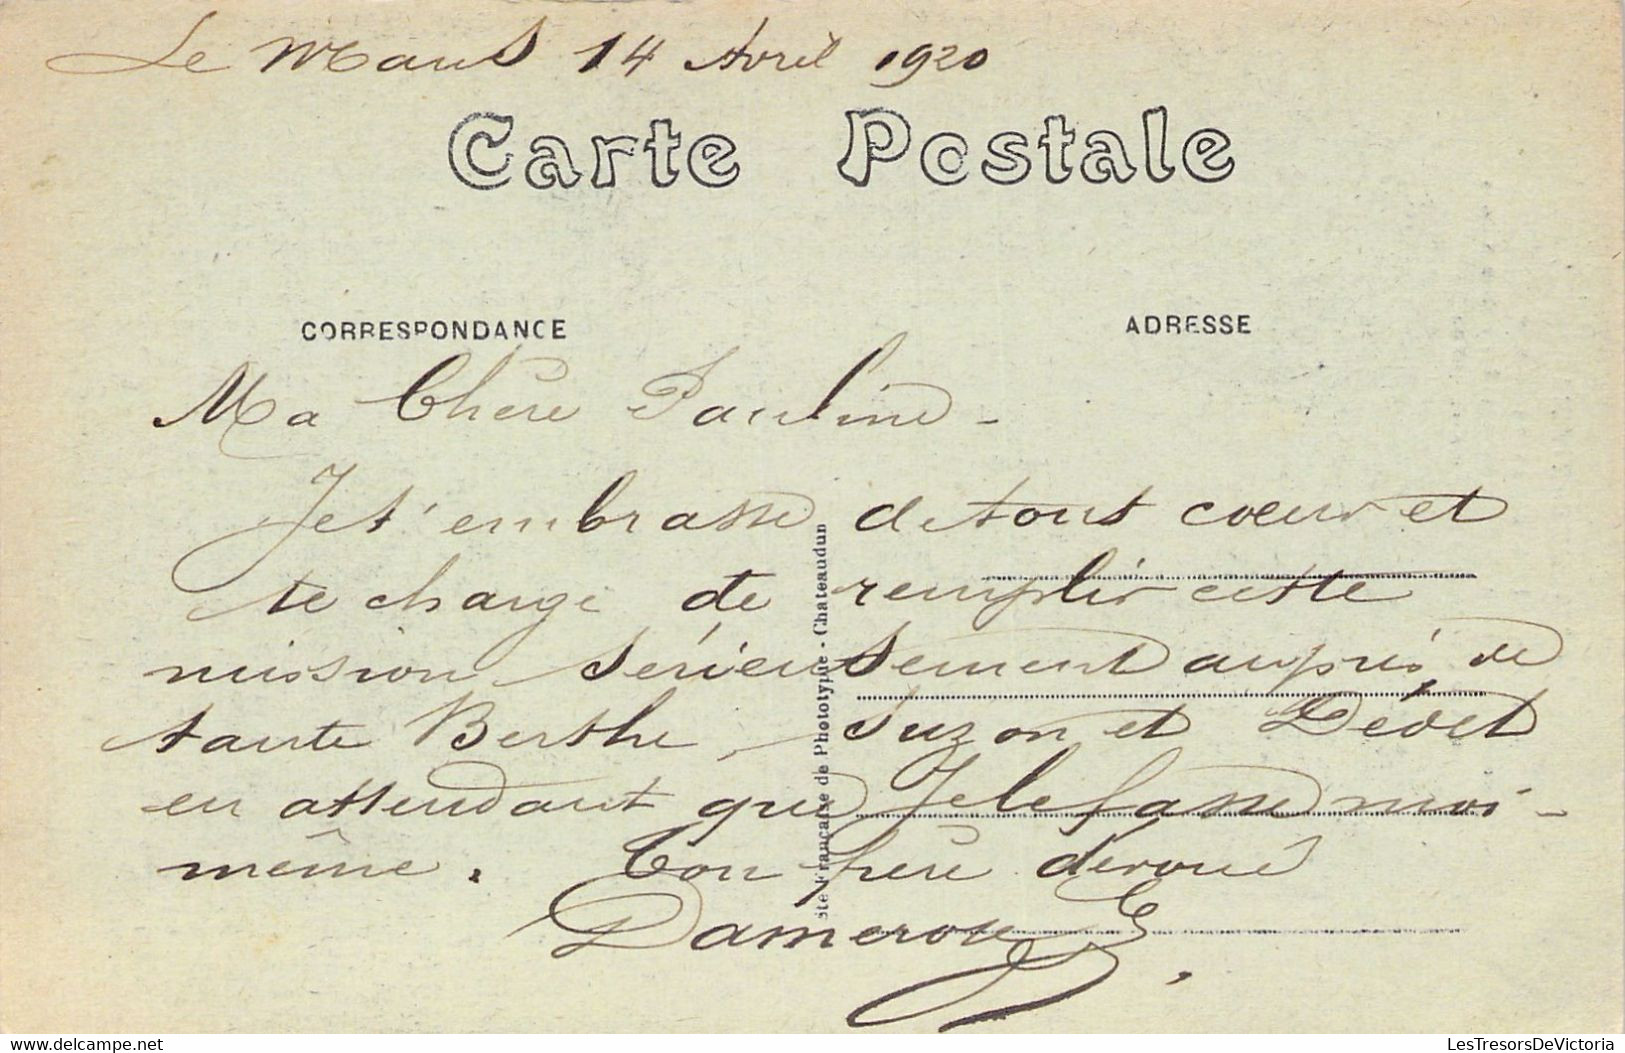 Le Mans 14 Avril 1920
Carte Postale
CORRESPONDANCE
ADRESSE
Ma Chère Pauline -
Je t'embrasse de tout coeur et
te charge de remplir cette
mission sérieusement auprès de
tante Berthe, Suzon et Dédet
en attendant que Je le fasse moi-
même. Ton frère dévoué
Dameron E.
Sté Française de Phototypie - Chateaudun
verso carte
LesTresorsDeVictoria